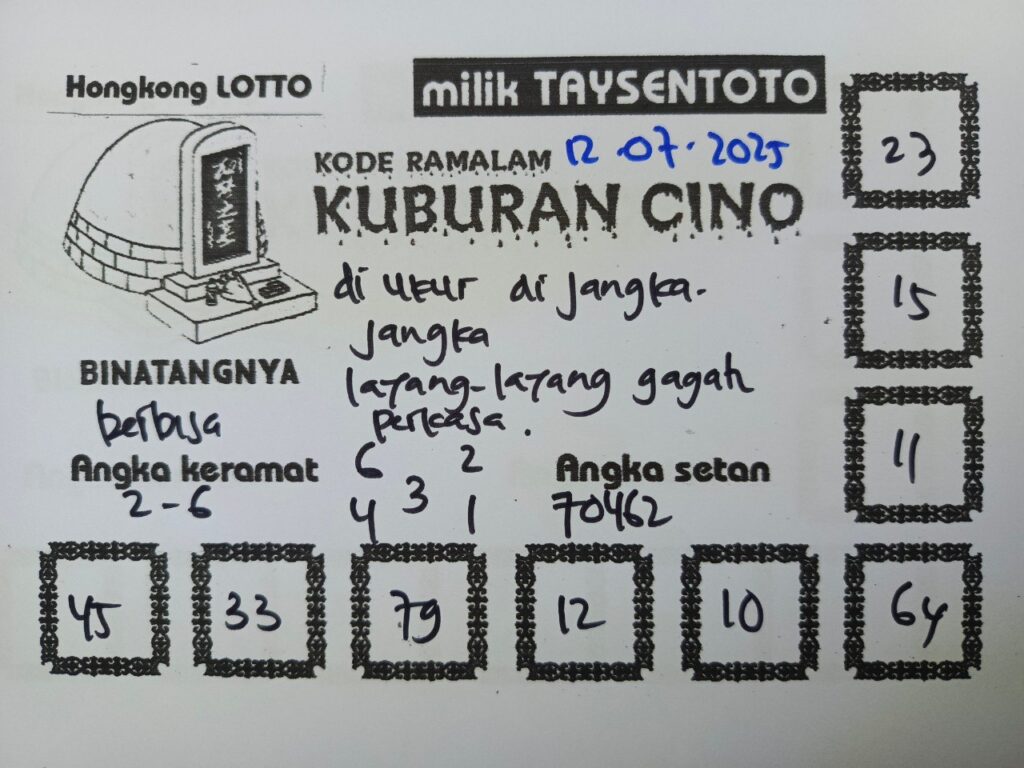 Hongkong LOTTO
milik TAYSENTOTO
KODE RAMALAM 12.07.2025
KUBURAN CINO
di ukur di jangka-
jangka
layang-layang gagah
perkasa.
BINATANGNYA
berbisa
Angka keramat
2-6
6 2
3
4 1
Angka setan
70462
23
15
11
45 33 79 12 10 64